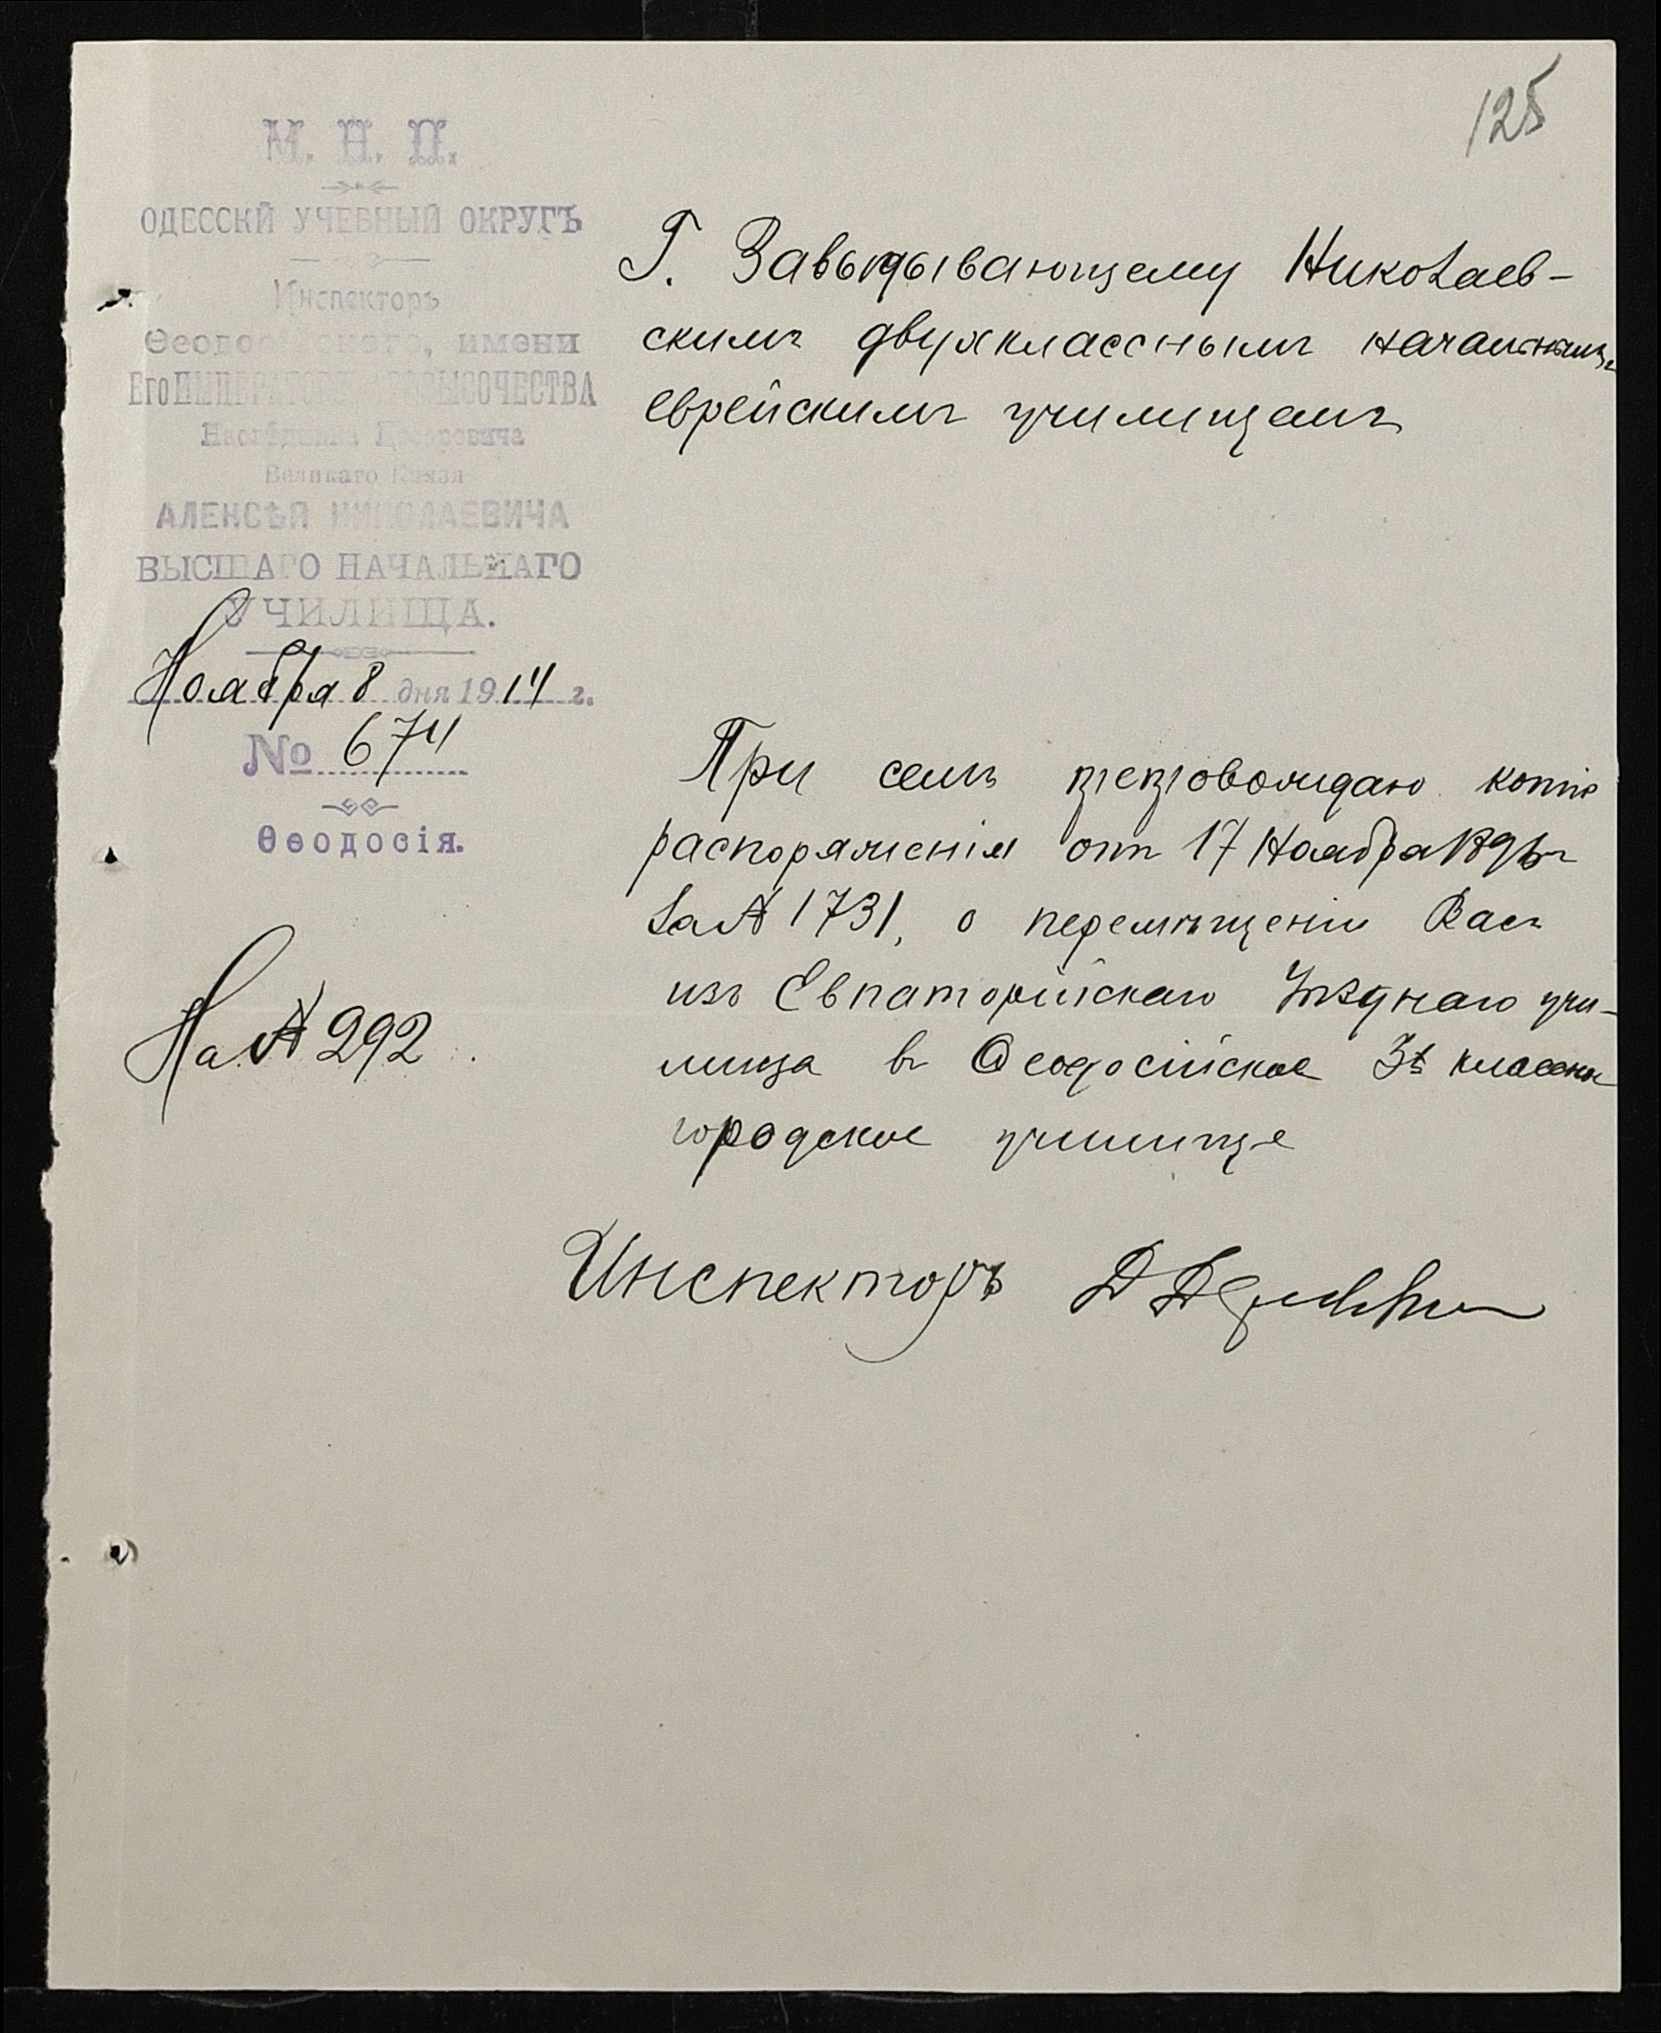 125
М. Н. П.
ОДЕССКІЙ УЧЕБНЫЙ ОКРУГЪ
Инспекторъ
Ѳеодосійскаго, имени
Его ИМПЕРАТОРСКАГО ВЫСОЧЕСТВА
Наслѣдника Цесаревича
Великаго Князя
АЛЕКСѢЯ НИКОЛАЕВИЧА
ВЫСШАГО НАЧАЛЬНАГО
УЧИЛИЩА.
Ноября 8 дня 1914 г.
№ 674
Ѳеодосія.
На № 292
Г. Завѣдывающему Николаев-
скимъ двухкласснымъ начальнымъ
еврейскимъ училищемъ
При семъ препровождаю копію
распоряженія отъ 17 Ноября
за № 1731, о перемѣщеніи Васъ
изъ Евпаторійскаго Уѣзднаго учи-
лища въ Ѳеодосійское 3х классное
городское училище
Инспекторъ